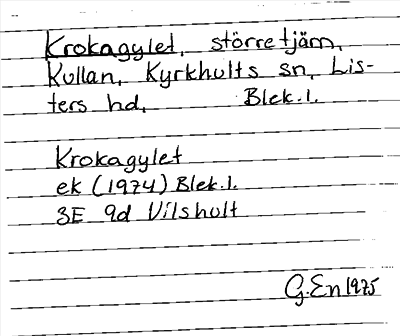 Krokagylet, större tjärn,
Kullan, Kyrkhults sn, Lis-
ters hd, Blek.l.
Krokagylet
ek (1974) Blek.l.
3E 9d Vilshult
G.En 1975